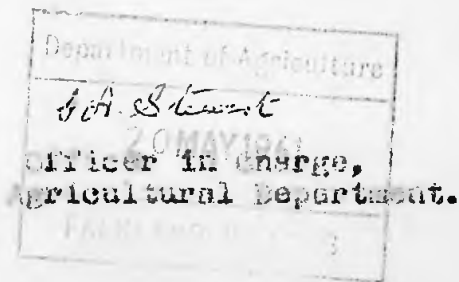 Department of Agriculture
Stewart
20 MAY 1941
Officer in charge,
Agricultural Department.